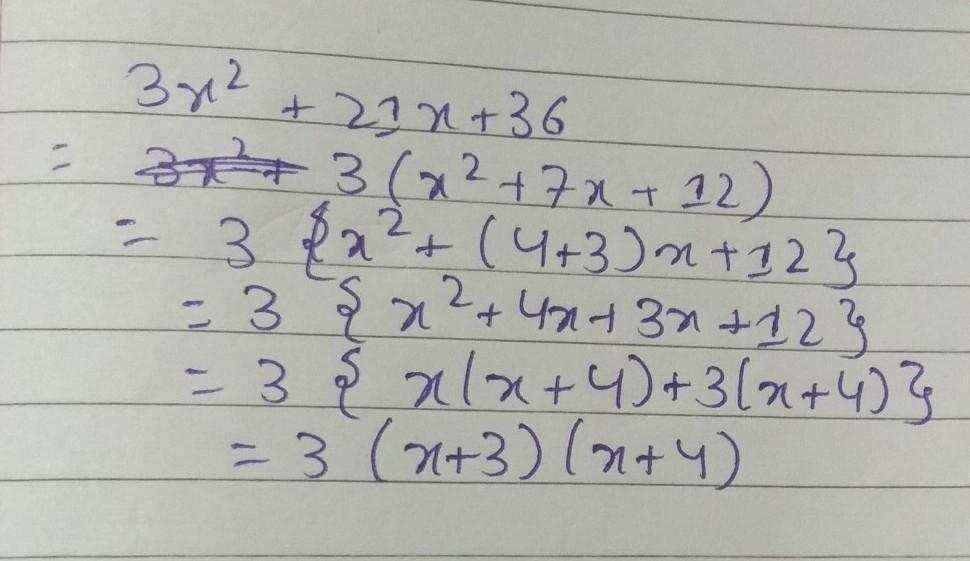 3x² + 21x + 36
= 3 (x² + 7x + 12)
= 3 {x² + (4+3)x + 12}
= 3 { x² + 4x + 3x + 12}
= 3 { x(x+4) + 3(x+4)}
= 3 (x+3) (x+4)